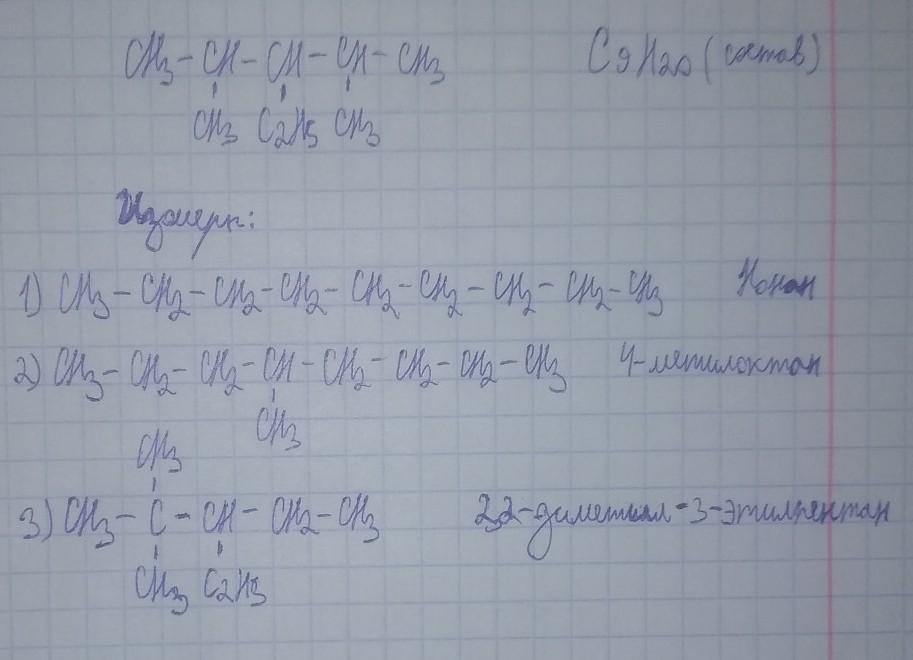 CH3-CH-CH-CH-CH3 C9H20 (состав)
CH3 C2H5 CH3
Изомеры:
1) CH3-CH2-CH2-CH2-CH2-CH2-CH2-CH2-CH3 Нонан
2) CH3-CH2-CH2-CH-CH2-CH2-CH2-CH3 4-метилоктан
CH3
CH3
3) CH3-C-CH-CH2-CH3 2,2-диметил-3-этилпентан
CH3 C2H5